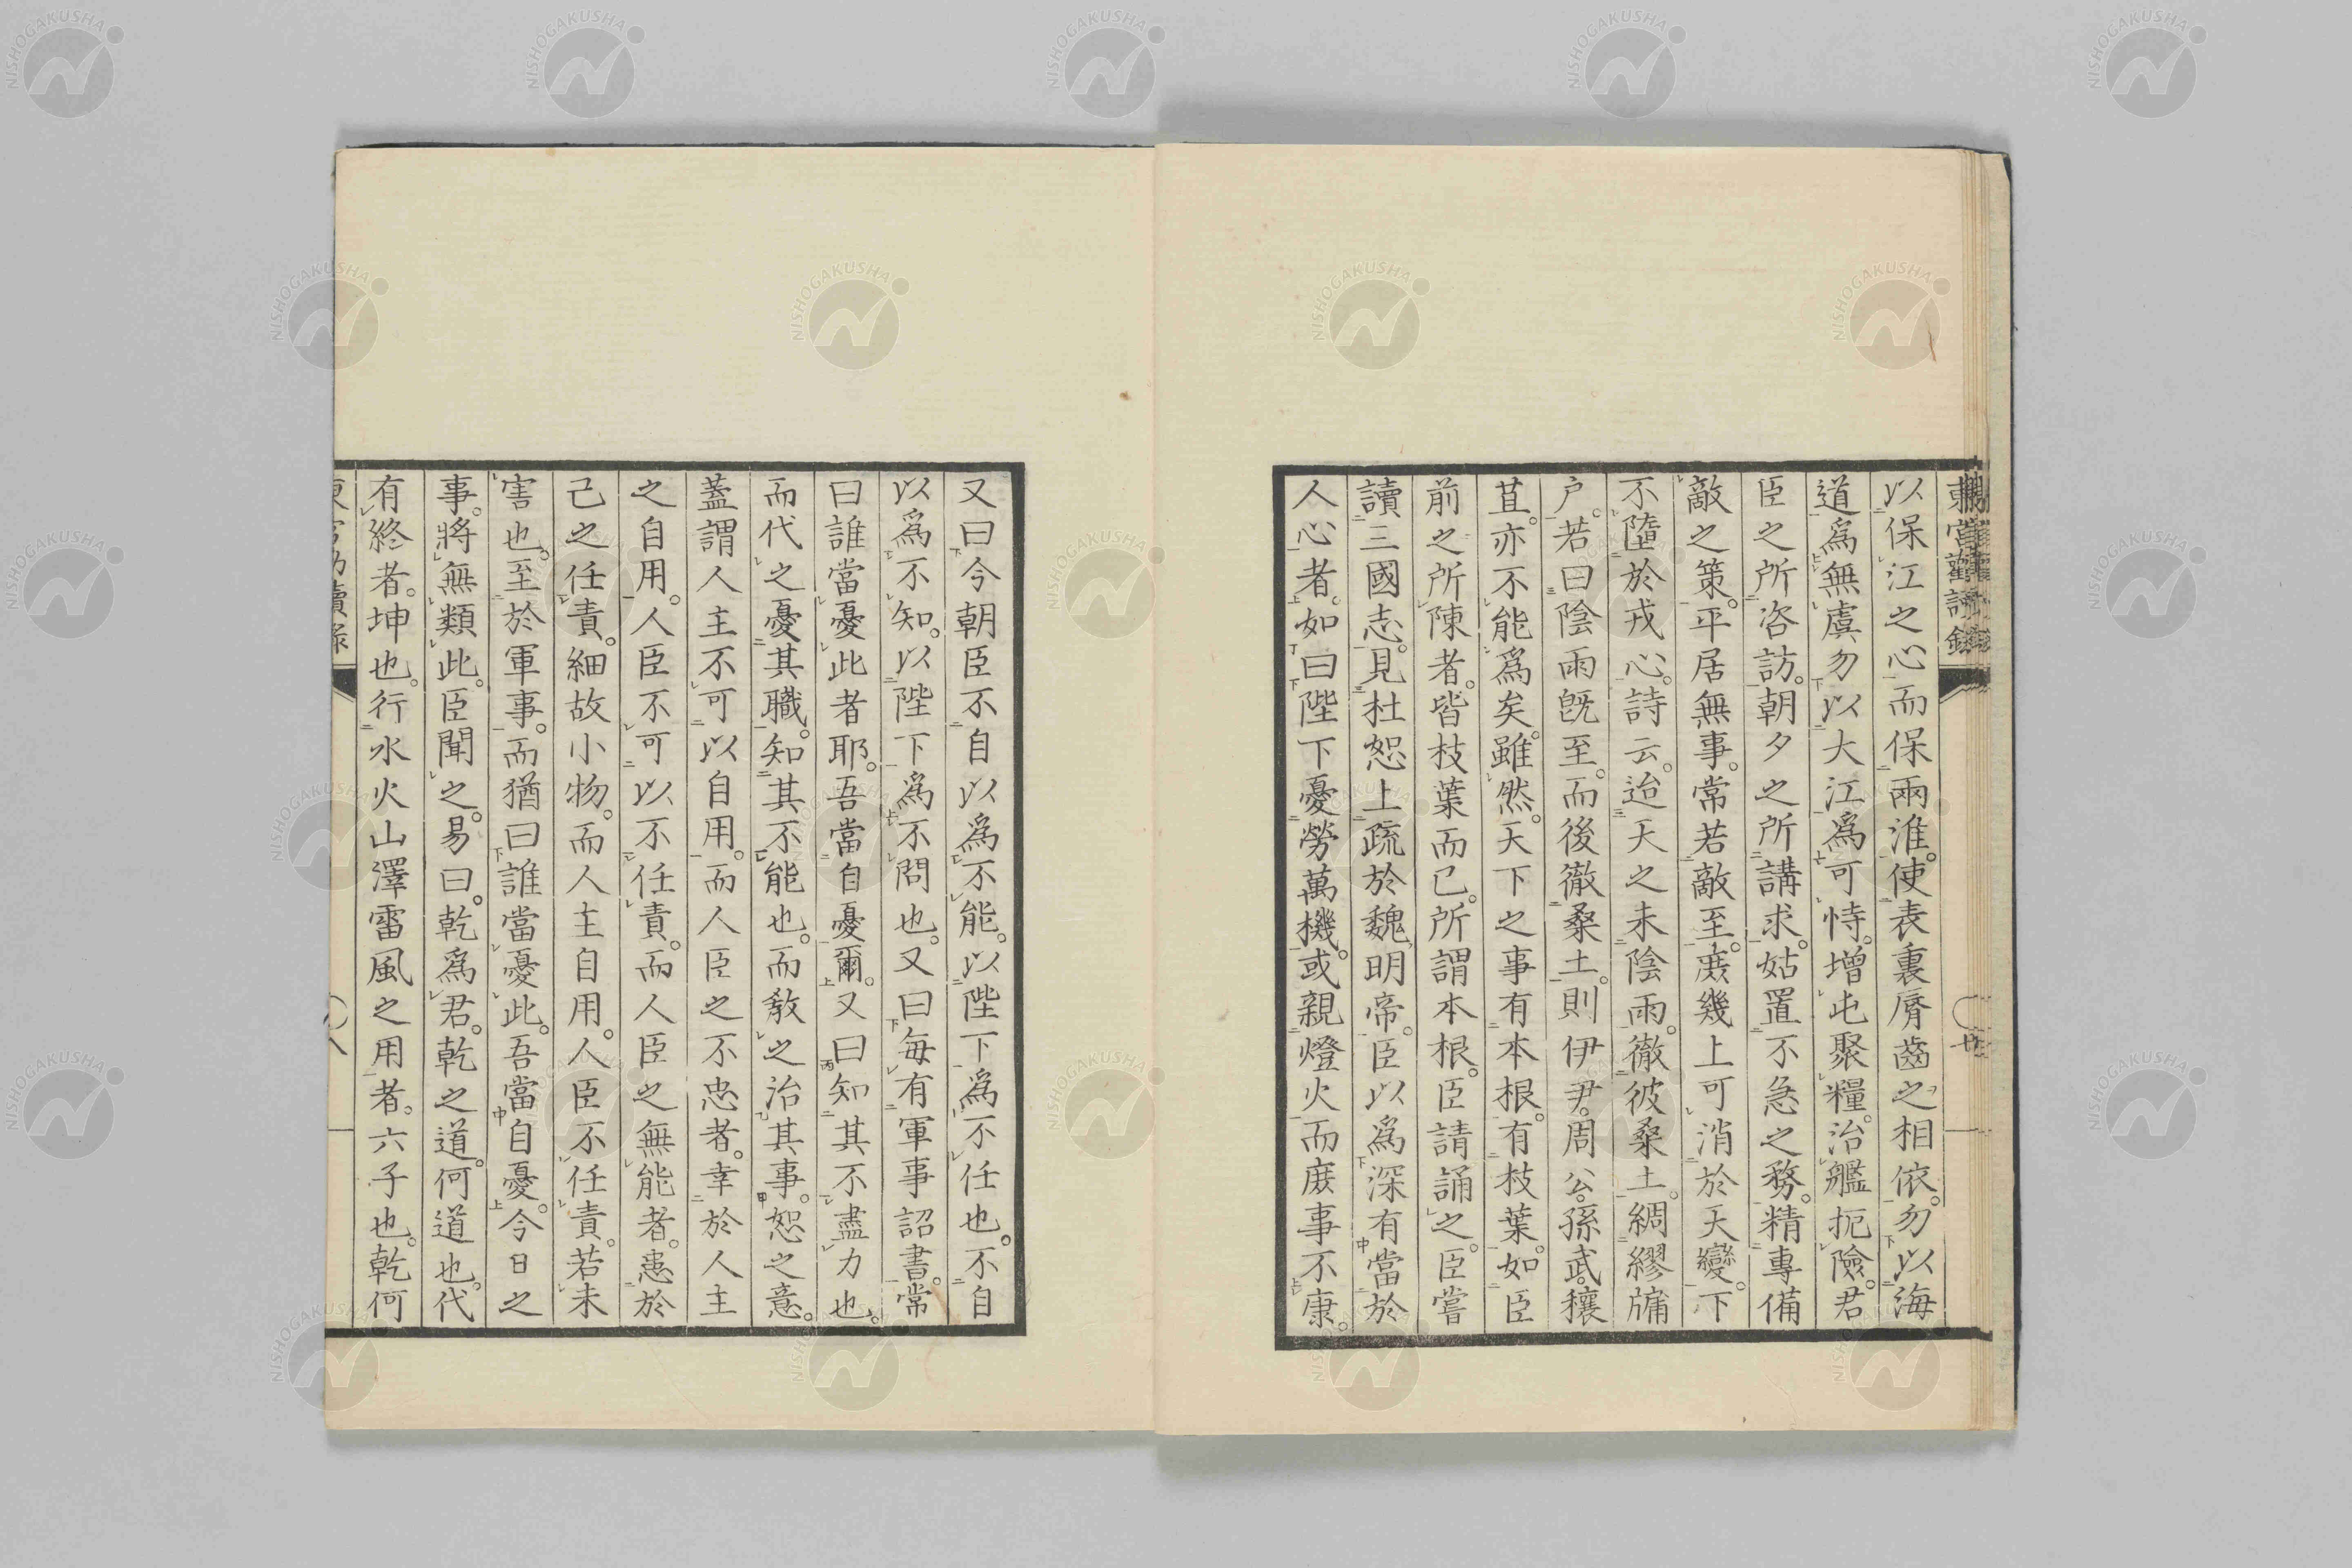 以保江之心而保兩淮。使表裏脣齒之相依。勿以海
道爲無虞勿以大江爲可恃。增屯聚糧。治艦扼險。君
臣之所咨訪。朝夕之所講求。姑置不急之務。精專備
敵之策。平居無事。常若敵至。庻幾上可消於天變。下
不墮於戎心。詩云。迨天之未陰雨。徹彼桑土。綢繆牖
户。若曰陰雨旣至。而後徹桑土。則伊尹。周公。孫武。穰
苴。亦不能爲矣。雖然。天下之事有本根。有枝葉。如臣
前之所陳者。皆枝葉而已。所謂本根。臣請誦之。臣嘗
讀三國志。見杜恕上疏於魏明帝。臣以爲深有當於
人心者。如曰陛下憂勞萬機。或親燈火而庻事不康。
又曰今朝臣不自以爲不能。以陛下爲不任也。不自
以爲不知。以陛下爲不問也。又曰每有軍事詔書。常
曰誰當憂此者耶。吾當自憂爾。又曰知其不盡力也。
而代之憂其職。知其不能也。而敎之治其事。恕之意。
蓋謂人主不可以自用。而人臣之不忠者。幸於人主
之自用。人臣不可以不任責。而人臣之無能者。患於
己之任責。細故小物。而人主自用。人臣不任責。若未
害也。至於軍事。而猶曰誰當憂此。吾當自憂。今日之
事。將無類此。臣聞之。易曰。乾爲君。乾之道。何道也。代
有終者。坤也。行水火山澤雷風之用者。六子也。乾何